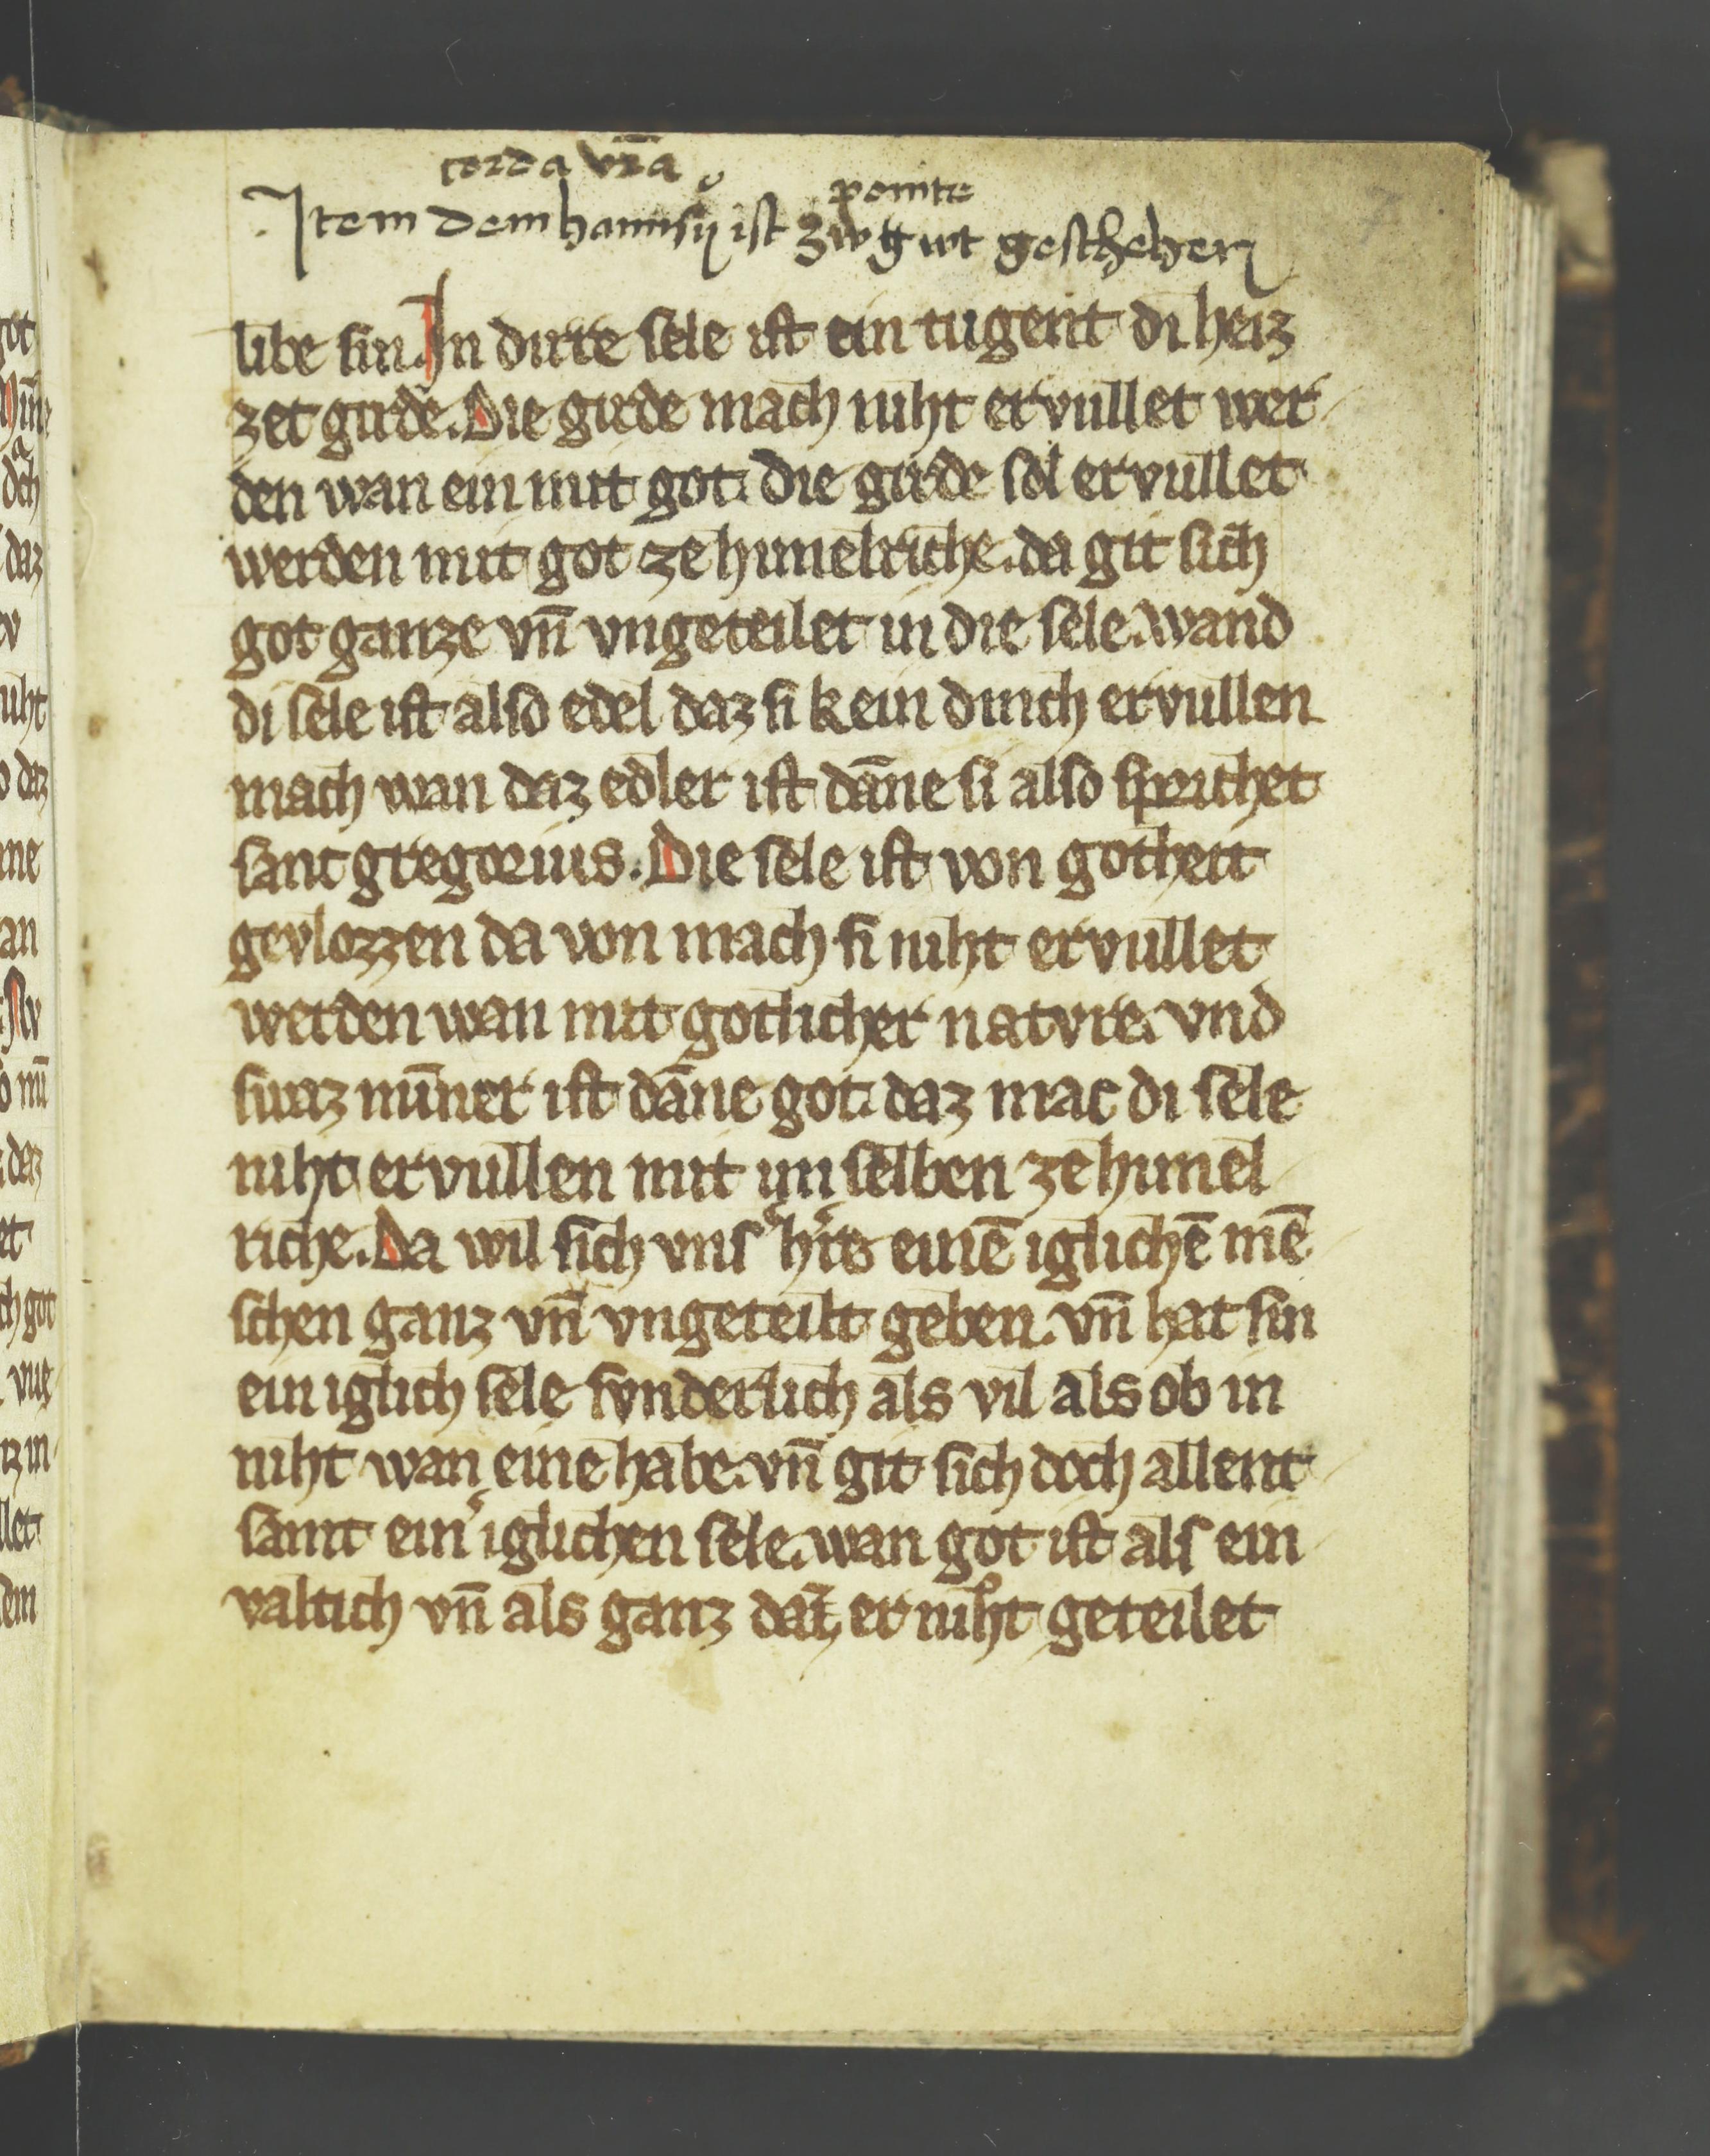 corda vr̄a
ponite
Item dem hannsy ist zw gut geschehen
7
libe sin. In dirre sele ist ein tugent di heiz
zet girde. Die girde mach niht ervullet wer
den wan ein mit got. die girde sol ervullet
werden mit got ze himelriche. da git sich
got ganze vn̄ vngeteilet in die sele. wand
di sele ist also edel daz si kein dinch ervullen
mach wan daz edler ist dāne si also sprichet
sant gregorius. Die sele ist von gotheit
gevlozzen da von mach si niht ervullet
werden wan mit gotlicher natvre. vnd
swaz mīner ist dāne got. daz mac di sele
niht ervullen mit im selben ze himel
riche. Da wil sich vns͛ h͛re einē iglichē mē
schen ganz vn̄ vngeteilt geben. vn̄ hat sin
ein iglich sele svnderlich als vil als ob in
niht wan eine habe. vn̄ git sich doch allent
samt ein͛ iglichen sele. wan got ist als ein
valtich vn̄ als ganz daz er niht geteilet